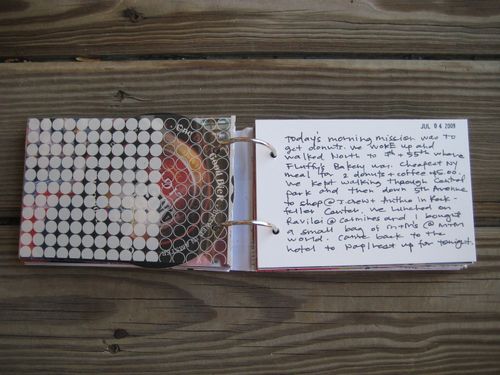 JUL 04 2009
Today's morning mission was to
get donuts. We woke up and
walked North to + 55th where
Fluffy's Bakery was. Cheapest NY
meal for 2 donuts + coffee $5.00.
We kept walking through Central
park and then down 5th Avenue
to shop @ J.crew + Anthro in Rock-
feller Center. We lunched on
Ravioli @ Carmines and I bought
a small bag of m+m's @ m+m
world. Came back to the
hotel to dress up for tonight.